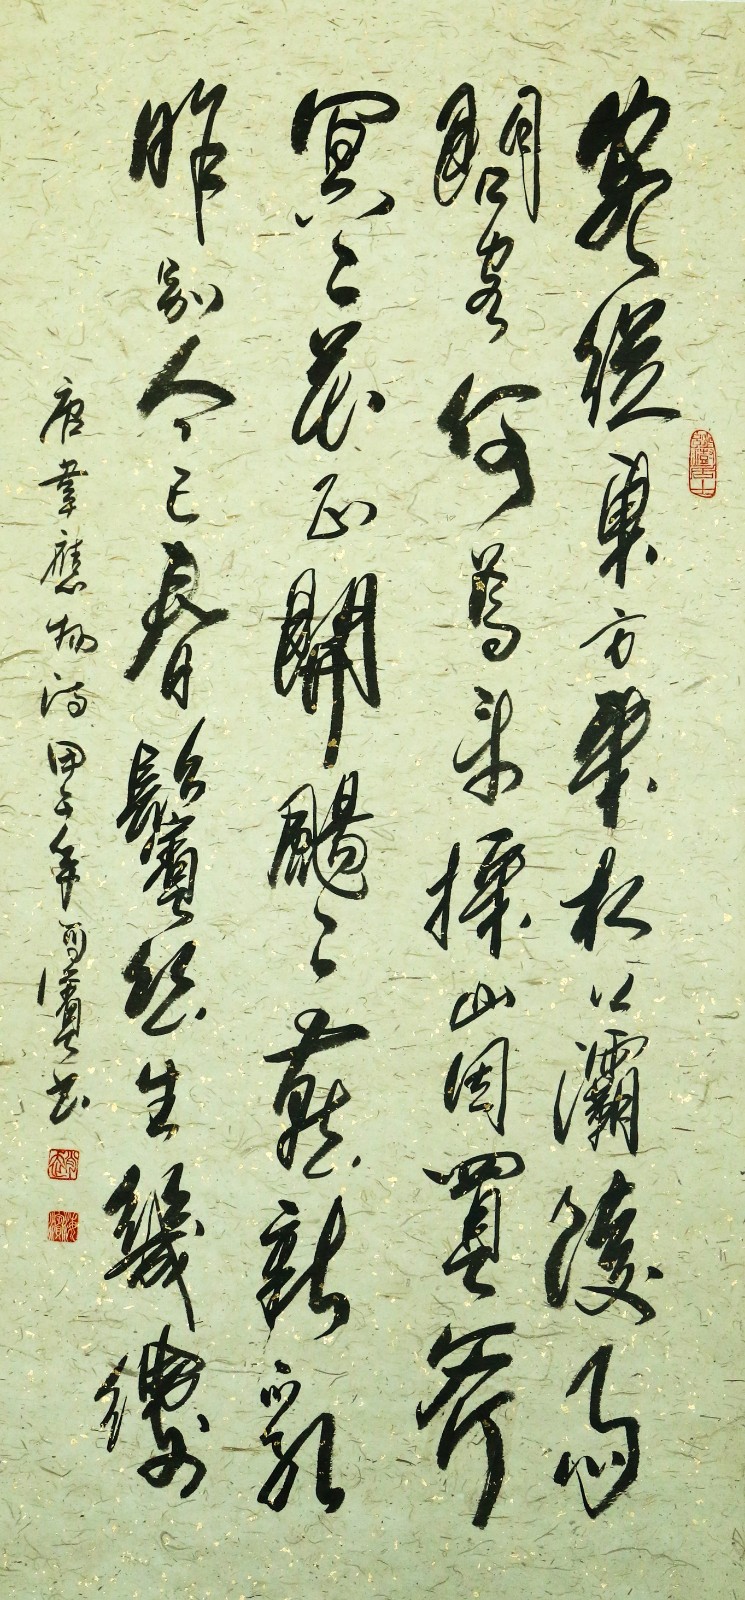 客從東方來衣上灞陵雨
問客何為來採山因買斧
冥〻花正開颺〻燕新乳
昨別今已春鬢絲生幾縷
唐韋應物詩甲子年濱書